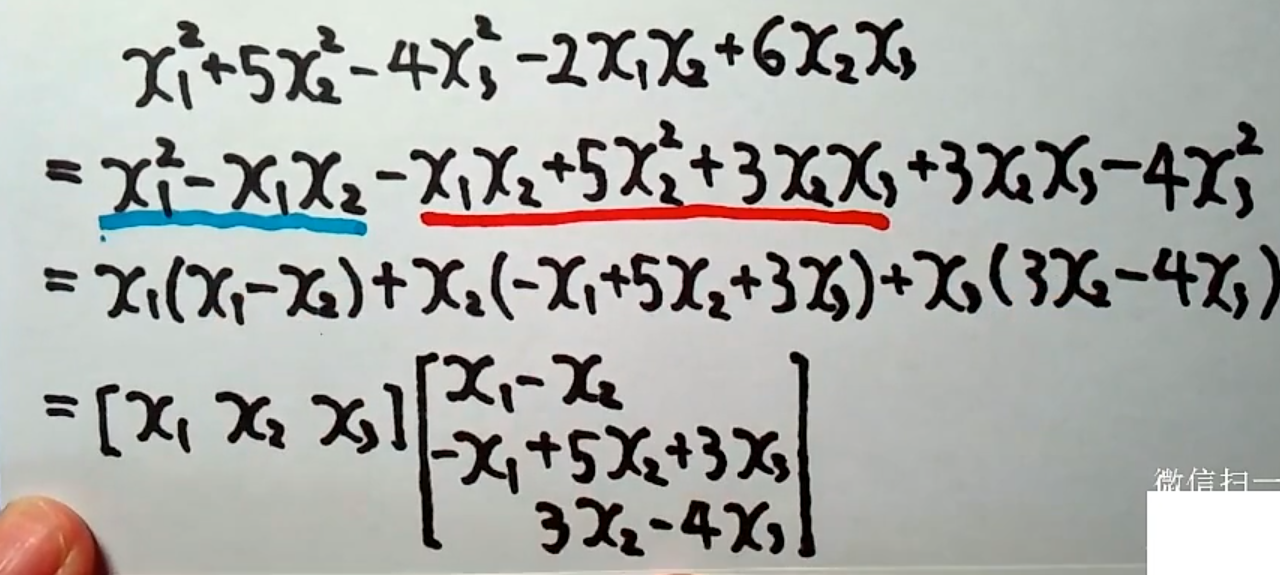 x₁²+5x₂²-4x₃²-2x₁x₂+6x₂x₃
=x₁²-x₁x₂-x₁x₂+5x₂²+3x₂x₃+3x₂x₃-4x₃²
=x₁(x₁-x₂)+x₂(-x₁+5x₂+3x₃)+x₃(3x₂-4x₃)
=[x₁ x₂ x₃][x₁-x₂
-x₁+5x₂+3x₃
3x₂-4x₃]
微信扫一